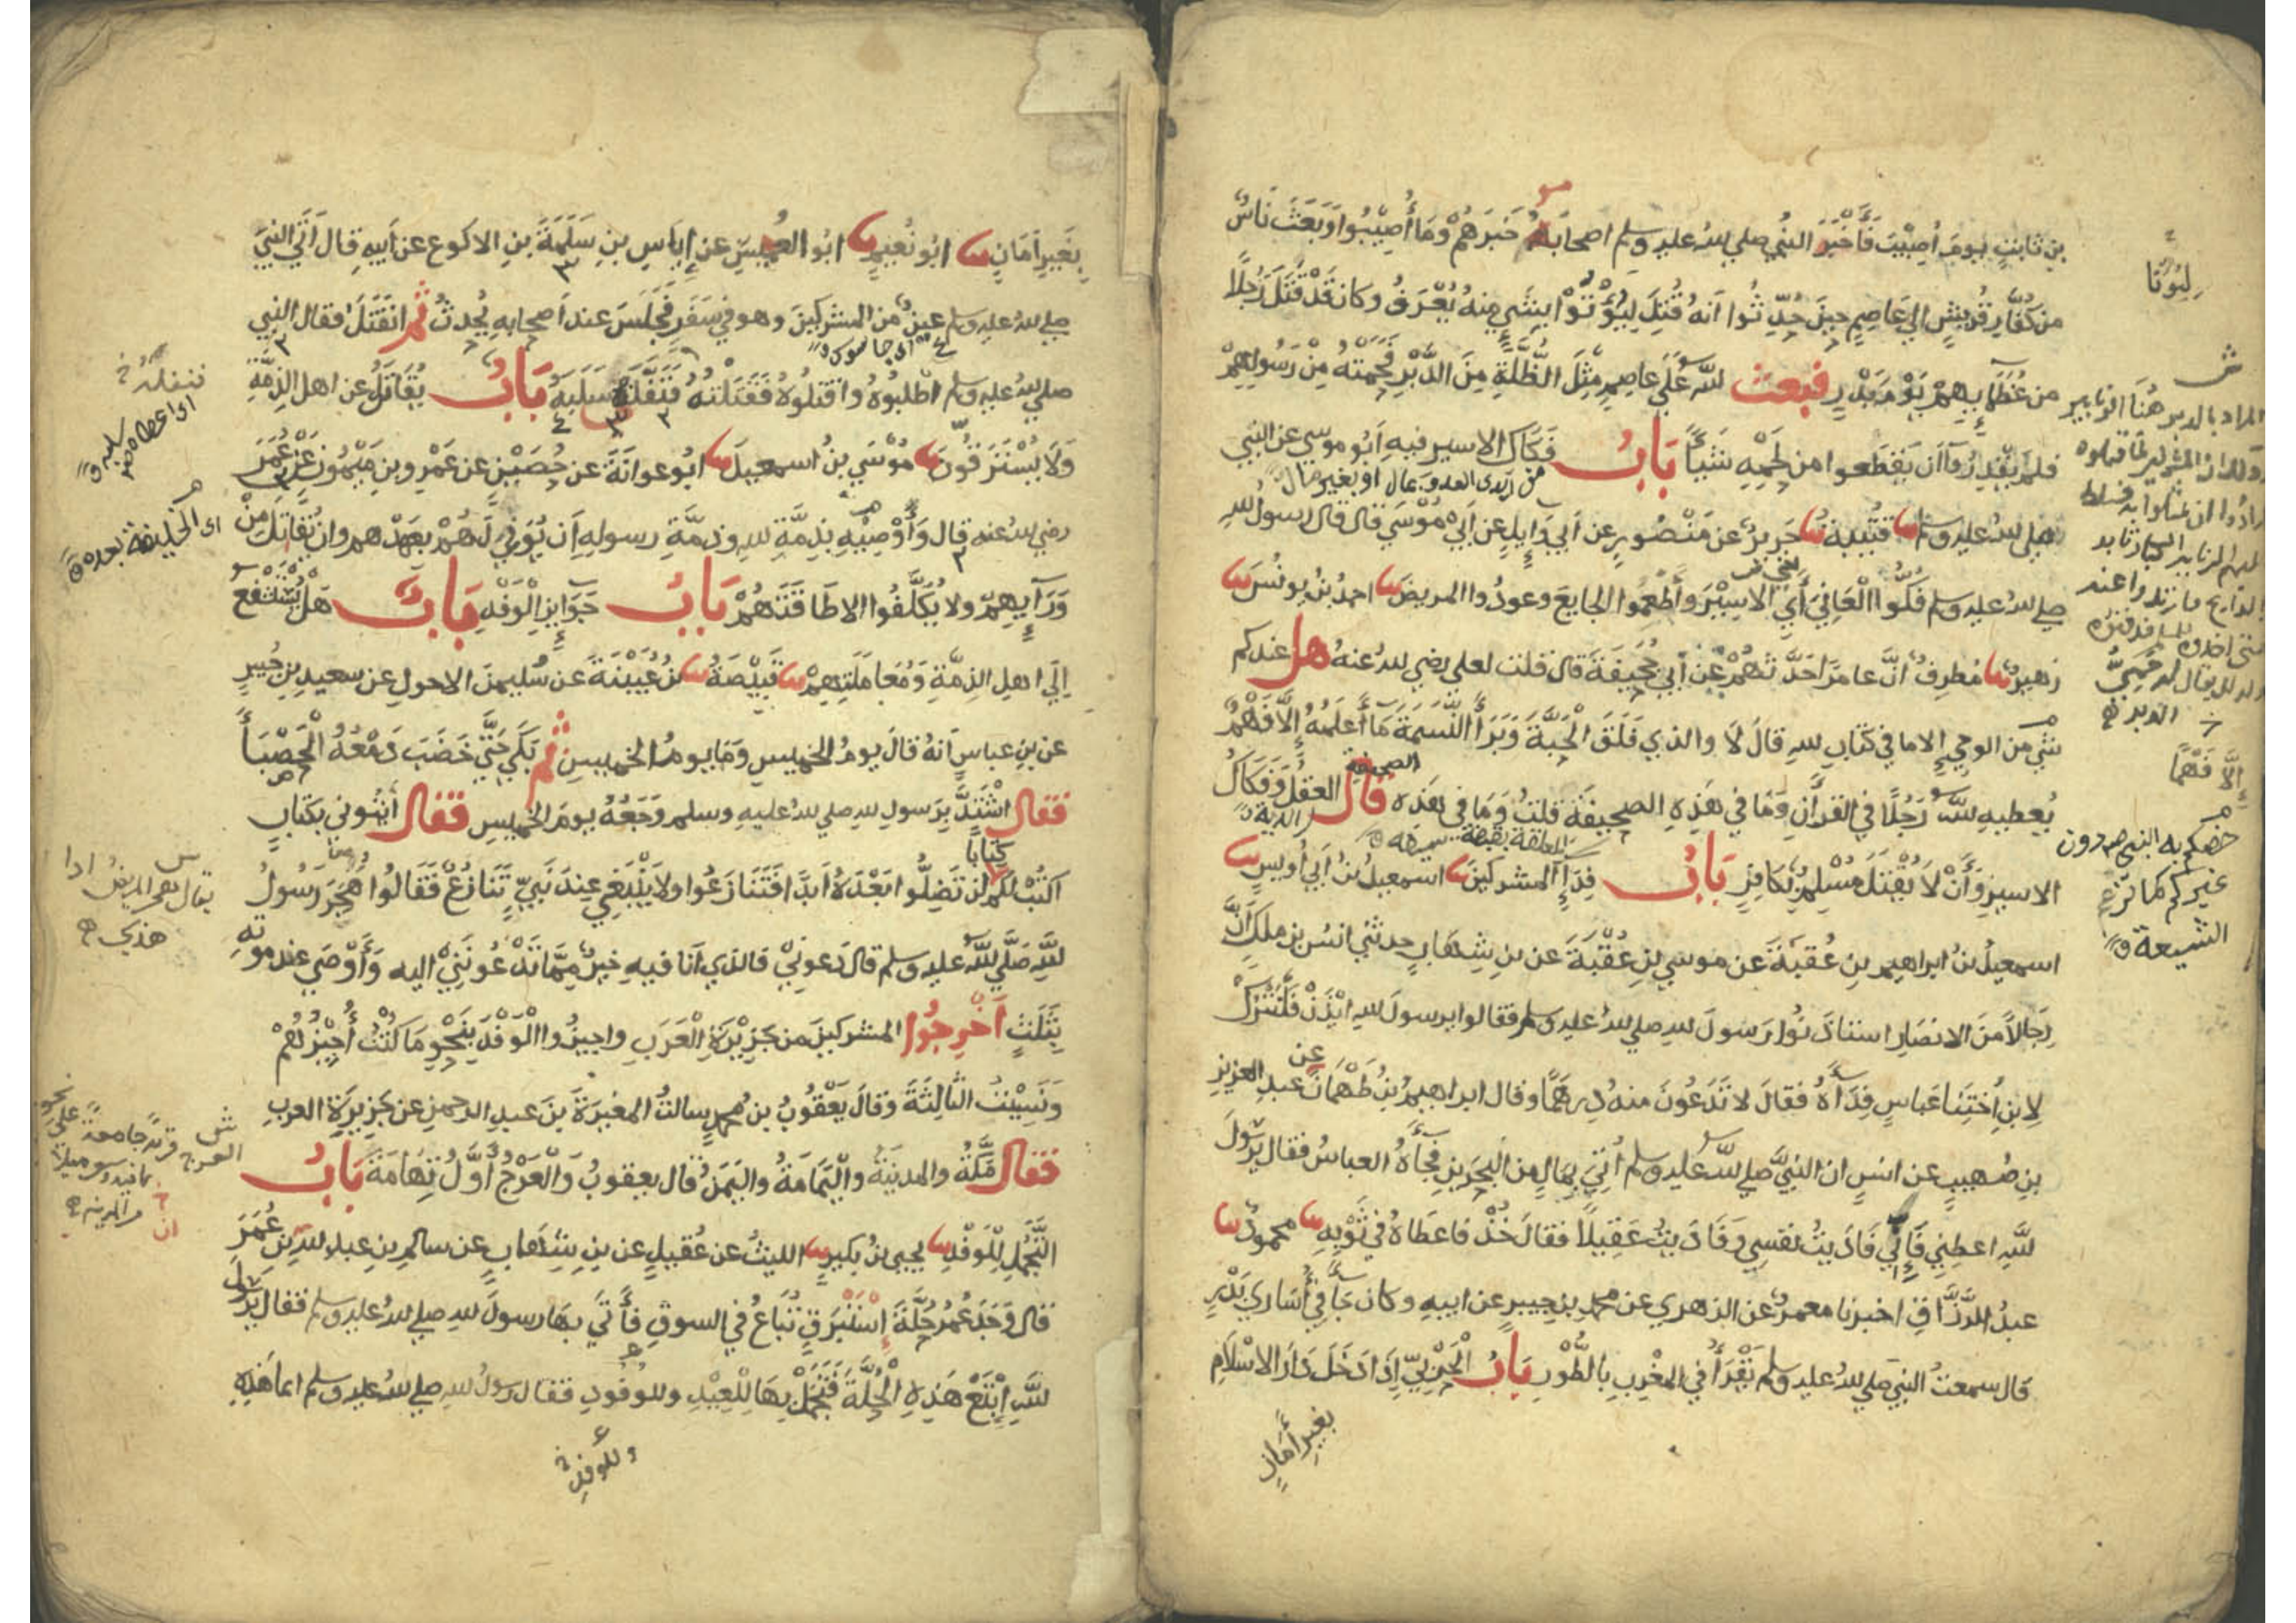 بن ثابتٍ يومَ أُصِيْبَ فَأَخْبَرَ النبي صلي لله عليه وسلم اصحابَهُ خَبَرَهُمْ وَمَا أُصِيْبُوا وَبَعَثَ نَاسٌ
من كُفَّارِ قُرَيْشٍ الي عَاصِمٍ حينَ حُدِّثُوا أنهُ قُتِلَ لِيُؤْتَوْا بِشَيءٍ مِنهُ يُعْرَفُ وكان قَدْ قَتَلَ رَجُلًا
من عُظَمَائِهِمْ يَوْمَ بَدْرٍ فبعث للهُ عَلَي عاصِمٍ مِثْلَ الظُّلَّةِ مِنَ الدَّبْرِ فَحَمَتْهُ مِنْ رَسُولِهِمْ
فلم يَقْدِرُوا أن يَقْطَعوا من لَحْمِهِ شَيْئًا بَابُ فَكَاكِ الاسير فيه أبو موسي عن النبي
من ايدي العدو بمال او بغير مال
صلي لله عليه وسلم قتيبةُ جَرِيرٌ عن مَنْصُورٍ عن أبي وَائِلٍ عن أبي مُوْسَي قال قال رسولُ للهِ
صلي لله عليه وسلم فُكُّوا الْعَانِيَ أَيِ الاسِيْرَ وأَطْعِمُوا الجايعَ وعودُوا المريضَ احمدُ بنُ يونُسَ
زهيرٌ مُطرِفٌ أنَّ عامرًا حَدَّثَهُمْ عَنْ أبي جُحَيفَةَ قال قلت لعلي رضي لله عنهُ هل عندكم
شيءٌ من الوحي الا ما في كتابِ للهِ قالَ لَا والذي فَلَقَ الْحَبَّةَ وَبَرَأَ النَّسَمَةَ مَا أَعلَمُهُ إِلَّا فَهْمٌ
يُعطيهِ للهُ رَجُلًا في القرآنِ وَمَا في هَذِهِ الصحيفَةِ قلتُ وَمَا في هَذِه الصحيفة قال العقلُ وَفَكَاكُ
الدية
الاسيرِ وَأَنْ لَا يُقْتَلَ مُسْلِمٌ بِكَافِرٍ بَابُ فِدَاءِ المشركينَ اسمعيلُ بنُ أبي أُوَيسٍ
اسمعيلُ بنُ ابراهيمِ بنِ عُقبَةَ عن موسي بنِ عُقْبَةَ عن بنِ شِهَابٍ حدثني انسُ بن ملكٍ أَنَّ
رِجَالًا مِنَ الانصَارِ استاذَنُوا رَسولَ للهِ صلي لله عليه وسلم فقالوا يرسولَ للهِ ائْذَنْ فَلْنَتْرُكْ
لِابنِ أُختِنَا عَبَاسٍ فِدَآءَهُ فقالَ لا تَدَعُونَ منهُ دِرهَمًا وقال ابراهيمُ بنُ طَهْمَانَ عن عبدِ العزيزِ
بنِ صُهَيبٍ عن انسٍ ان النبيَّ صلي لله عليه وسلم أُتِيَ بِمَالٍ مِن البَحرَينِ فَجَآءَهُ العباسُ فقال يَرسولَ
للهِ اعطِنِي فَإِنِّي فَادَيتُ نفسِي وَفَادَيتُ عَقِيلًا فقالَ خُذْ فاعطَاهُ في ثَوْبِهِ محمودٌ
عبدُ الرَّزَّاقِ اخبرنا معمرٌ عن الزهري عن محمدِ بن جبيرٍ عن ابيهِ وكان جَآءَ في أُسَارَي بَدْرٍ
قال سمعتُ النبيَّ صلي لله عليه وسلم يَقْرَأُ في المغْرِبِ بِالطُّوْرِ بَابُ الْحَرْبِيِّ إِذَا دَخَلَ دَارَ الاسْلَامِ
بِغَيرِ أَمَانٍ
لِيُؤْتَا
ش
المراد بالدبر هُنَا الزنابير
إِلَّا فَهْمًا
غيركم كما تزعم
الشيعة
بِغَيرِ أَمَانٍ ابُو نُعَيمٍ ابُو العُمَيسِ عن إِيَاسِ بنِ سَلَمَةَ بنِ الاكوعِ عن أَبيهِ قال أَتَي النبيَّ
صلي لله عليه وسلم عينٌ من المشركينَ وهو في سَفَرٍ فَجَلَسَ عند أصحابِهِ يُحدثُ ثُمَّ انفَتَلَ فقال النبي
اي جاسوس
صلي لله عليه وسلم اطْلُبُوهُ واقتلُوهُ فَقَتَلْتُهُ فَنَفَّلَهُ سَلَبَهُ بَابُ يُقَاتَلُ عن اهل الذِمَّةِ
وَلَا يُسْتَرَقُّونَ مُوْسَي بنُ اسمعيلَ ابُو عوانَةَ عن حُصَيْنٍ عن عَمْرِو بنِ مَيْمُونٍ عَنْ عُمَرَ
رضي لله عنه قال وَأُوْصِيْهِ بِذِمَّةِ للهِ وَذِمَّةِ رسولِهِ أن يُوَفِيَ لَهُمْ بعَهْدِهم وان يُقَاتَلَ مِنْ
وَرَآئِهِمْ ولا يُكَلَّفُوا الا طَاقَتَهُمْ بَابُ جَوَائِزِ الْوَفْدِ بَابُ هَلْ يُسْتَشْفَعُ
إلَي اهلِ الذِمَّةِ وَمُعَامَلَتِهِمْ قَبِيْصَةُ بنُ عُيَيْنَةَ عن سُليمنَ الاحولِ عن سعيدِ بنِ جُبيرٍ
عن بنِ عباسٍ أنهُ قالَ يومُ الخميسِ وَمَا يومُ الخميسِ ثم بَكَي حَتَّي خَضَبَ دَمْعُهُ الْحَصْبَاءَ
فقال اشْتَدَّ بِرَسولِ للهِ صلي لله عليهِ وسلم وَجَعُهُ يومَ الخميسِ فقال ائتُوني بكتابٍ
اكتُبْ لكم كِتَابًا لن تَضِلُّوا بَعْدَهُ أبدًا فَتَنَازَعُوا ولا يَنْبَغِي عِندَ نَبِيٍّ تَنَازُعٌ فَقَالُوا هَجَرَ رَسُولُ
للهِ صَلَّي للهُ عليه وسلم قال دَعونِيْ فالذي أنا فيهِ خيرٌ مِمَّا تَدْعُونَنِيْ اليه وَأَوْصَي عِند موتِهِ
بِثَلَثٍ أَخْرِجُوا المشركينَ من جَزِيْرَةِ الْعَرَبِ واجيزُوا الْوَفْدَ بِنَحْوِ مَا كُنْتُ أُجِيْزُهُمْ
وَنَسِيْتُ الثَّالِثَةَ وَقالَ يَعْقُوبُ بنُ محمدٍ سالتُ المغيرَةَ بنَ عبدِ الرحمنِ عن جَزِيرَةِ العربِ
فقال مَكَّةُ والمدينَةُ والْيَمَامَةُ واليَمَنُ وقال يعقوبُ وَالْعَرْجُ أوَّلُ تِهَامَةَ بَابُ
التَّجَمُّلِ لِلْوَفْدِ يحيي بنُ بكيرٍ الليثُ عن عُقَيلٍ عن بنِ شِهَابٍ عن سالمِ بنِ عبدِ للهِ بنِ عُمَرَ
قال وَجَدَ عُمَرُ حُلَّةَ إِسْتَبْرَقٍ تُبَاعُ في السوقِ فَأَتَي بِهَا رسولَ للهِ صلي لله عليه وسلم فقال يَرسولَ
للهِ إِبْتَعْ هَذِهِ الْحُلَّةَ فَتَجَمَّلْ بِهَا لِلْعِيْدِ وللوُفُودِ فقال رسولُ للهِ صلي لله عليه وسلم انما هَذِهِ
وللوفدِ
اي اعطاه
سلبه
اي الخليفة بعده
يقال هجر المريض اذا
هذي
ش
العرج قرية جامعة علي نحو
من المدينه